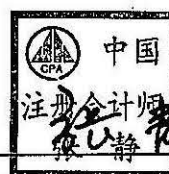 CPA
中国
注册会计师
张静